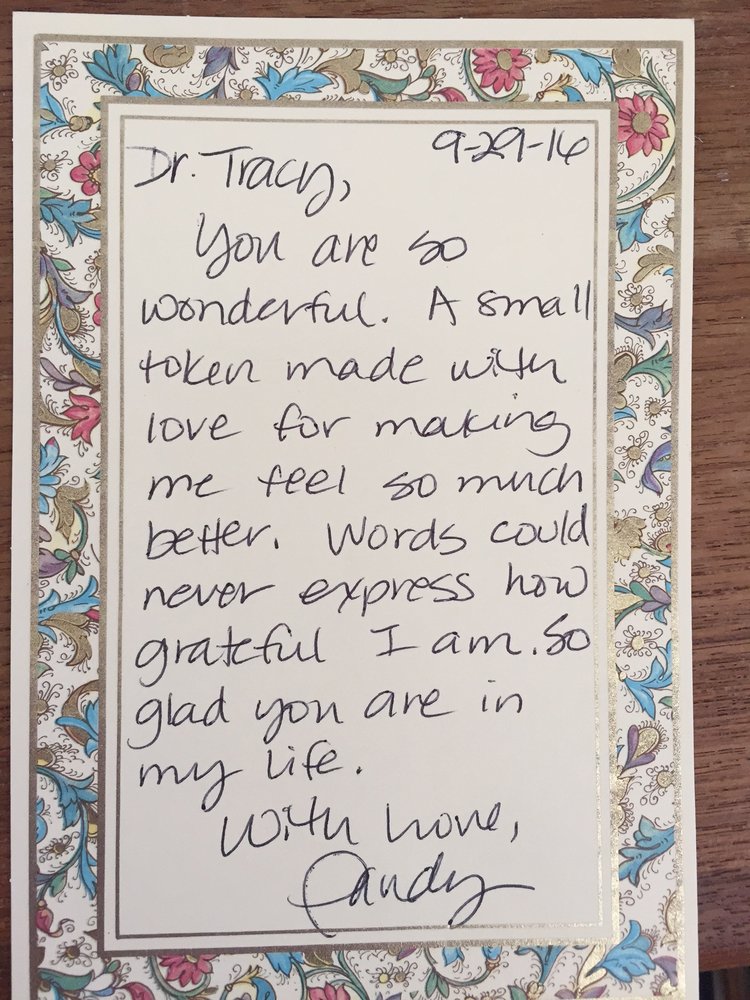 9-29-16
Dr. Tracy,
You are so
wonderful. A small
token made with
love for making
me feel so much
better. Words could
never express how
grateful I am. So
glad you are in
my life.
With Love,